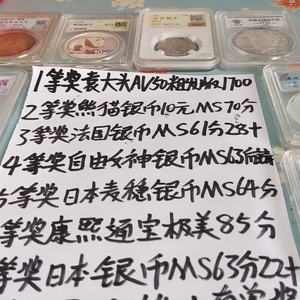 1等奖袁大头AU50粗发版1700
2等奖熊猫银币10元MS70分
3等奖法国银币MS61分28+
4等奖自由女神银币MS63
5等奖日本麦穗银币MS64分
等奖康熙通宝极美85分
等奖日本银币MS63分22+